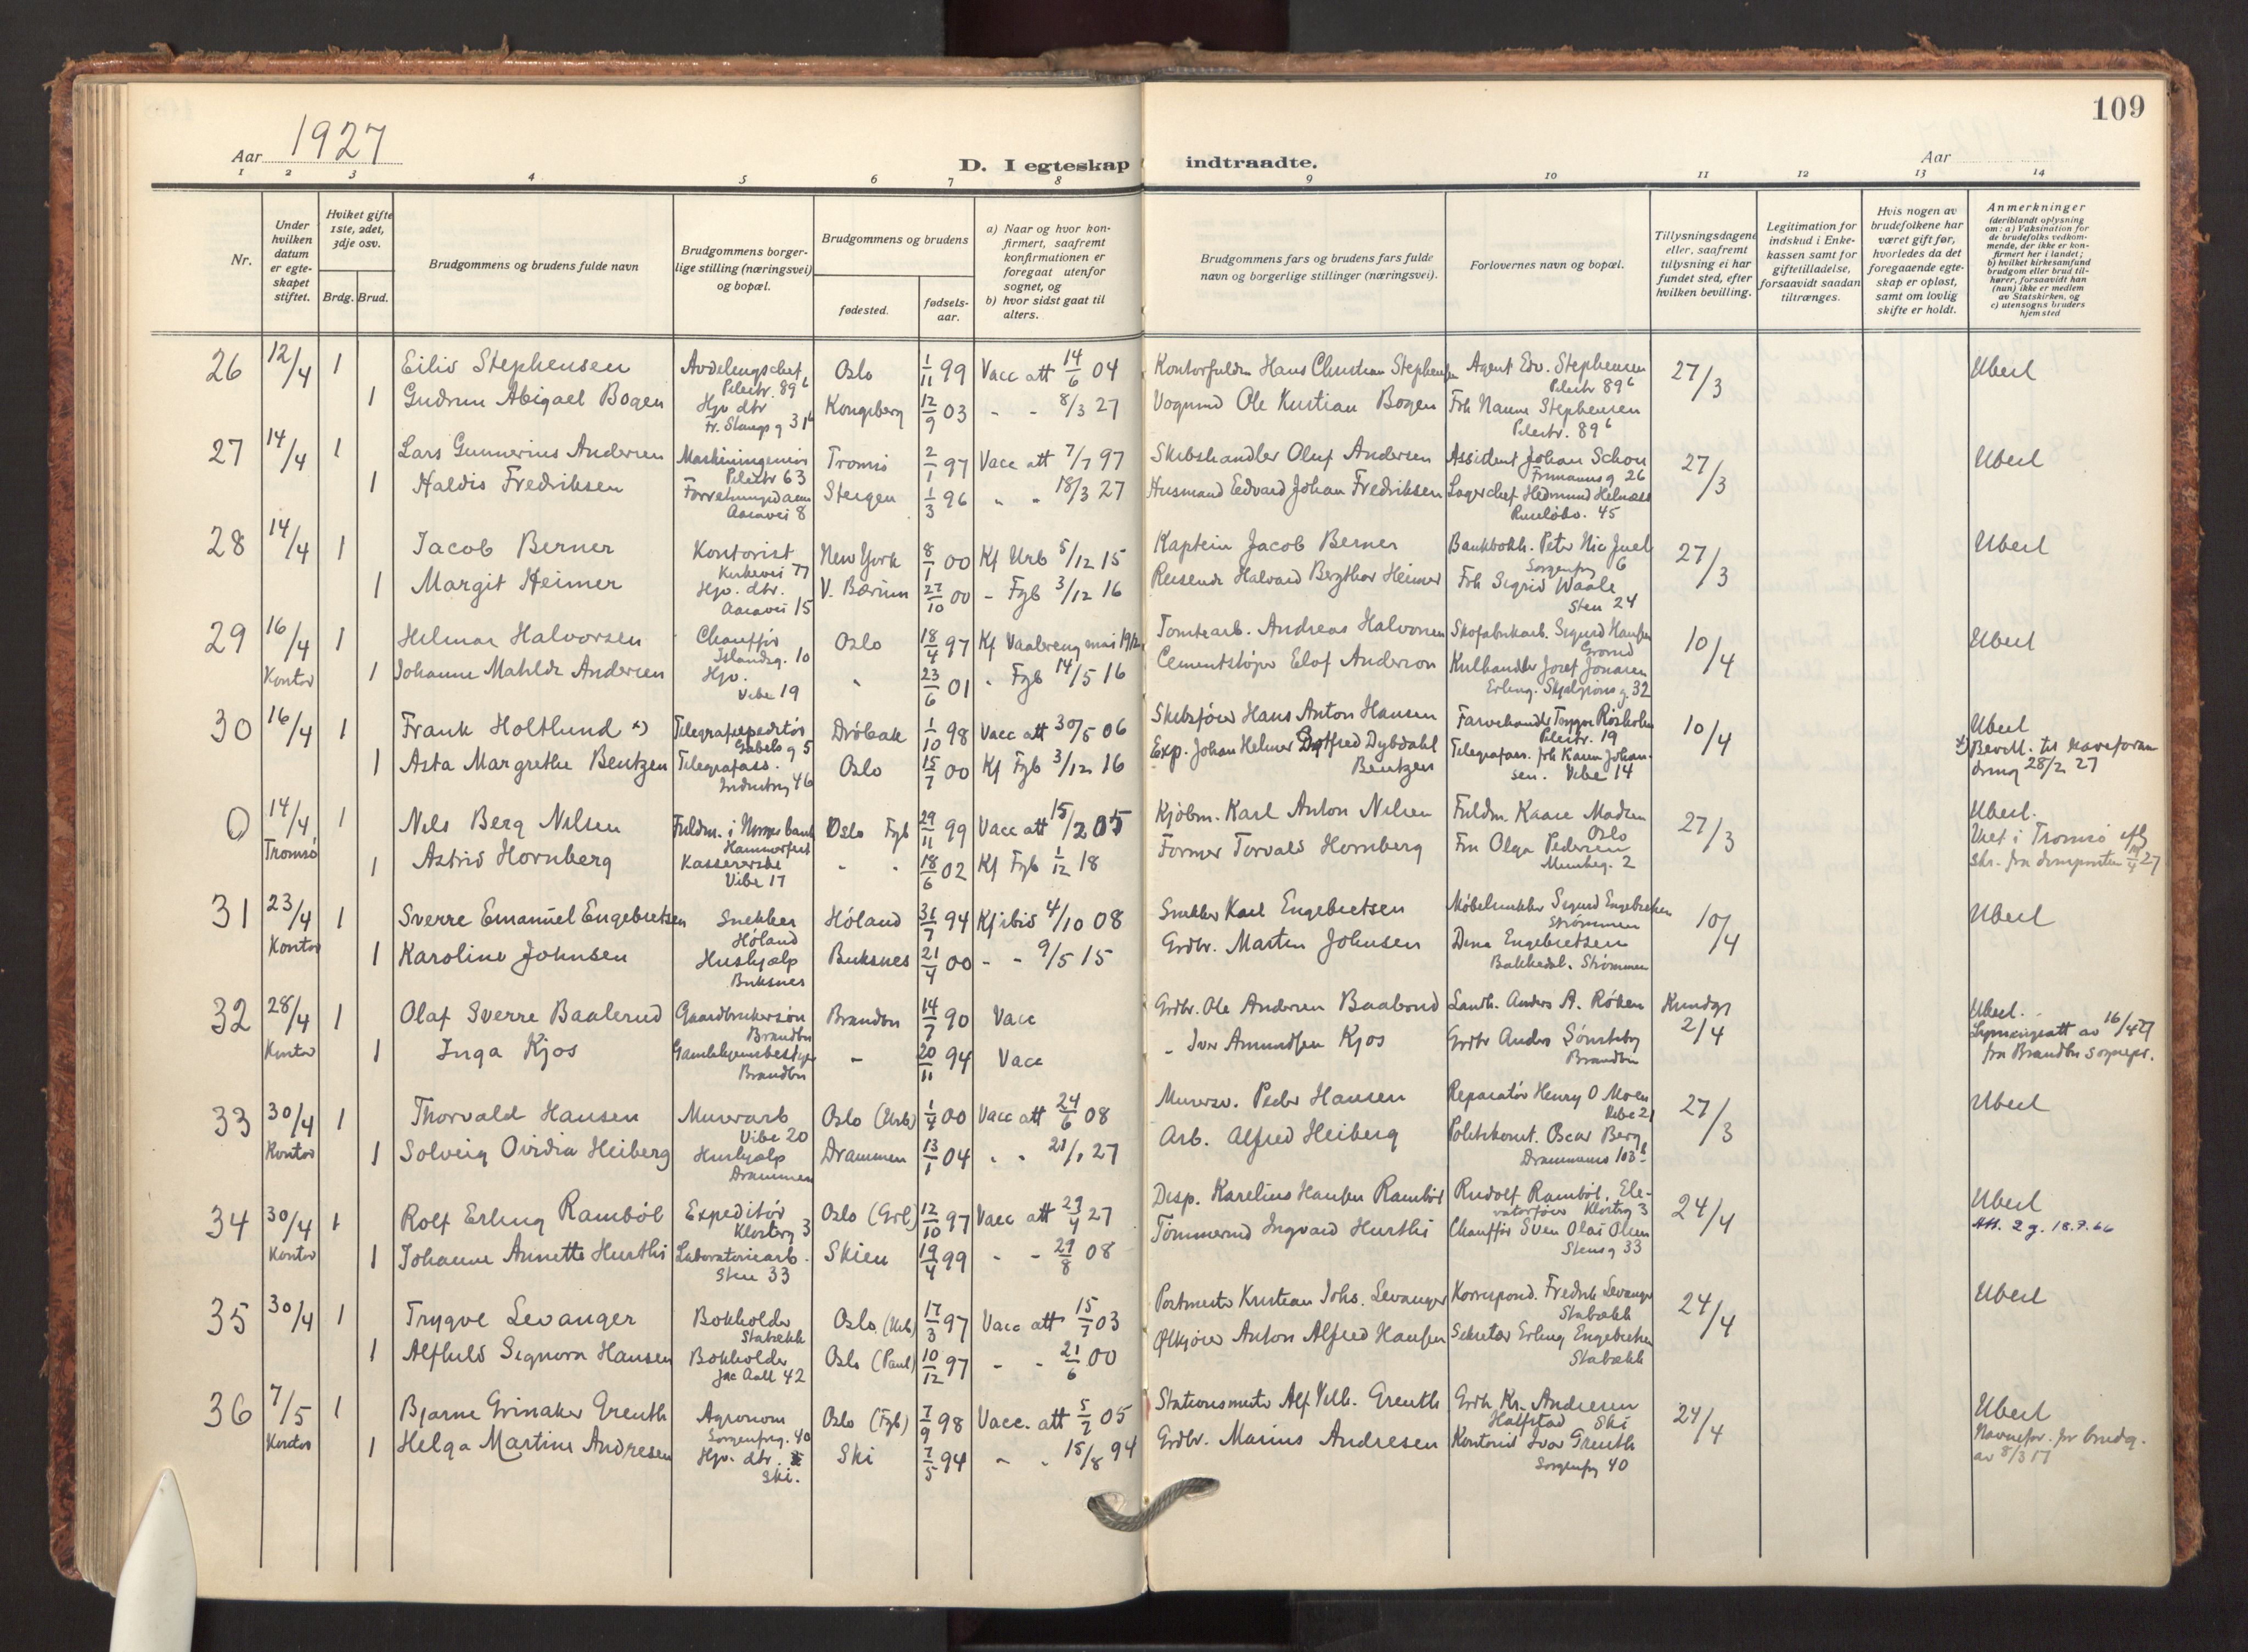 109
Aar 1927
D. I egteskap indtraadte.
Aar
1 2 3 4 5 6 7 8 9 10 11 12 13 14
Nr.
Under hvilken datum er egteskapet stiftet.
Hviket gifte 1ste, 2det, 3dje osv.
Brdg. Brud.
Brudgommens og brudens fulde navn
Brudgommens borgerlige stilling (næringsvei) og bopæl.
Brudgommens og brudens
fødested.
fødselsaar.
a) Naar og hvor konfirmert, saafremt konfirmationen er foregaat utenfor sognet, og
b) hvor sidst gaat til alters.
Brudgommens fars og brudens fars fulde navn og borgerlige stillinger (næringsvei).
Forlovernes navn og bopæl.
Tillysningsdagene eller, saafremt tillysning ei har fundet sted, efter hvilken bevilling.
Legitimation for indskud i Enkekassen samt for giftetilladelse, forsaavidt saadan tiltrænges.
Hvis nogen av brudefolkene har været gift før, hvorledes da det foregaaende egteskap er opløst, samt om lovlig skifte er holdt.
Anmerkninger
(deriblandt oplysning om: a) Vaksination for de brudefolks vedkommende, der ikke er konfirmert her i landet; b) hvilket kirkesamfund brudgom eller brud tilhører, forsaavidt han (hun) ikke er medlem av Statskirken, og c) utensogns bruders hjemsted
26 12/4 1 Eiliv Stephensen Avdelingschef Pilestr. 89 b Oslo 1/11 99 Vacc att 14/6 04 Kontorfuldm Hans Christian Stephensen Agent Edv. Stephensen Pilestr 89 b 27/3 Ubesl
1 Gudrun Abigael Bogen Hjv dtr Fr. Stangs g 31 b Kongsberg 12/9 03 - - 8/3 27 Vognmd Ole Kristian Bogen Frk Nanna Stephensen Pilestr. 89 b
27 14/4 1 Lars Gunnerius Andersen Maskiningeniør Pilestr 63 Tromsø 2/1 97 Vacc att 7/7 97 Skibshandler Oluf Andersen Assistent Johan Schou 26 27/3 Ubesl
1 Haldis Fredriksen Aacavei 8 Steigen 1/3 96 " " 18/3 27 Husmand Edvard Johan Fredriksen Lagerchef Hedmund Helnæss 45
28 14/4 1 Jacob Berner Kontorist Kirkevei 77 New York 8/1 00 Kf Urb 5/12 15 Kaptein Jacob Berner Bankbokh. Peter Nic Juel Sorgenfrig 6 27/3 Ubesl
1 Margit Heimer Hjv. dtr. Aacavei 15 V. Bærum 27/10 00 - Fgb 3/12 16 Reisende Halvard Bergthor Heimer Frk Sigrid Waale Sten 24
29 16/4 Kontor 1 Hilmar Halvorsen Chauffør Islandsg. 10 Oslo 18/4 97 Kf Vaalereng mai 1912 Tomtearb. Andreas Halvorsen Skofabrikarb. Sigurd Hansen Grorud 10/4 Ubesl
1 Johanne Mathilde Andersen Hjv. Vibe 19 " 23/6 01 " Fgb 14/5 16 Cementstøper Elof Anderson Kulhandler Josef Jonasen Erling Skjalgsons g. 32
30 16/4 1 Frank Holtlund x) Telegrafexpeditør Gabels g 5 Drøbak 1/10 98 Vacc att 30/5 06 Skibsfører Hans Anton Hansen Farvehandler Trygve Røsholm Pilestr. 19 10/4 Ubesl
x) Bevill. til navneforandring 28/2 27
1 Asta Margrethe Bentzen Telegrafass. Industrig 46 Oslo 15/7 00 Kf Fgb 3/12 16 Exp. Johan Helmer Gotfred Dybdahl Bentzen Telegrafass. frk Karin Johansen. Vibe 14
0 14/4 Tromsø 1 Nils Berg Nilsen Fuldm. i Norges bank Hammerfest Oslo Fgb 29/11 99 Vacc att 15/2 05 Kjøbm. Karl Anton Nilsen Fuldm. Kaare Madsen Oslo 27/3 Ubesl.
Viet i Tromsø iflg skr. fra domprosten 19/4 27
1 Astrid Hornberg Kassererske Vibe 17 - - 18/6 02 Kf Fgb 1/12 18 Former Torvald Hornberg Fru Olga Pedersen Munkeg. 2
31 23/4 Kontor 1 Sverre Emanuel Engebretsen Snekker Høland Høland 31/7 94 Kf ibid 4/10 08 Snekker Karl Engebretsen Møbelsnekker Sigurd Engebretsen Strømmen 10/4 Ubesl
1 Karoline Johnsen Hushjælp Buksnes Buksnes 21/4 00 - - 9/5 15 Grdbr. Martin Johnsen Dina Engebretsen Bakkedal. Strømmen
32 28/4 Kontor 1 Olaf Sverre Baalerud Gaardbrukersøn Brandbu Brandbu 14/7 90 Vacc Grdbr. Ole Andersen Baalerud Landh. Anders A. Røken Kundgj 2/4 Ubesl.
Lysningsatt av 16/4 27 fra Brandbu sognepr.
1 Inga Kjos Gamlehjemsbestyrer Brandbu - 20/11 94 Vacc - Iver Amundsen Kjos Grdbr Anders Sønsteby Brandbu
33 30/4 Kontor 1 Thorvald Hansen Murerarb Vibe 20 Oslo (Urb) 1/4 00 Vacc att 24/6 08 Murersv. Peder Hansen Reparatør Henry O Moen Vibe 21 27/3 Ubesl
1 Solveig Ovidia Heiberg Hushjælp Drammen Drammen 13/1 04 " " 21/1 27 Arb. Alfred Heiberg Politikonst. Oscar Berg Drammensv 103 b
34 30/4 Kontor 1 Rolf Erling Rambøl Expeditør Klosterg 3 Oslo (Grl) 12/10 97 Vacc att 23/4 27 Disp. Karelius Hansen Rambøl Rudolf Rambøl, Elevatorfører Klosterg 3 24/4 Ubesl
Att. 2 g. 18.7.66
1 Johanne Annette Hurthi Laboratoriearb. Sten 33 Skien 19/4 99 - - 29/8 08 Tømmermd Ingvard Hurthi Chauffør Sven Olai Olsen Stens g 33
35 30/4 1 Trygve Levanger Bokholder Stabækk Oslo (Urb) 17/3 97 Vacc att 15/7 03 Postmester Kristian Johs. Levanger Korrespond. Fredrik Levanger Stabækk 24/4 Ubesl
1 Alfhild Signora Hansen Bokholder Jac Aall 42 Oslo (Paul) 10/12 97 - - 21/6 00 Ølkjører Anton Alfred Hansen Sekretær Erling Engebretsen Stabækk
36 7/5 Kontor 1 Bjarne Grinaker Greuth Agronom Sorgenfrig. 40 Oslo (Fgb) 7/9 98 Vacc. att 5/7 05 Stationsmester Alf Vilh. Greuth Grdbr. Kr. Andresen Halfstad Ski 24/4 Ubesl
Navnefor. for brudg. av 8/3 17
1 Helga Martine Andresen Hjv. dtr. Ski. Ski 7/5 94 - - 15/8 94 Grdbr. Marius Andresen Kontorist Ivar Greuth Sorgenfrig 40